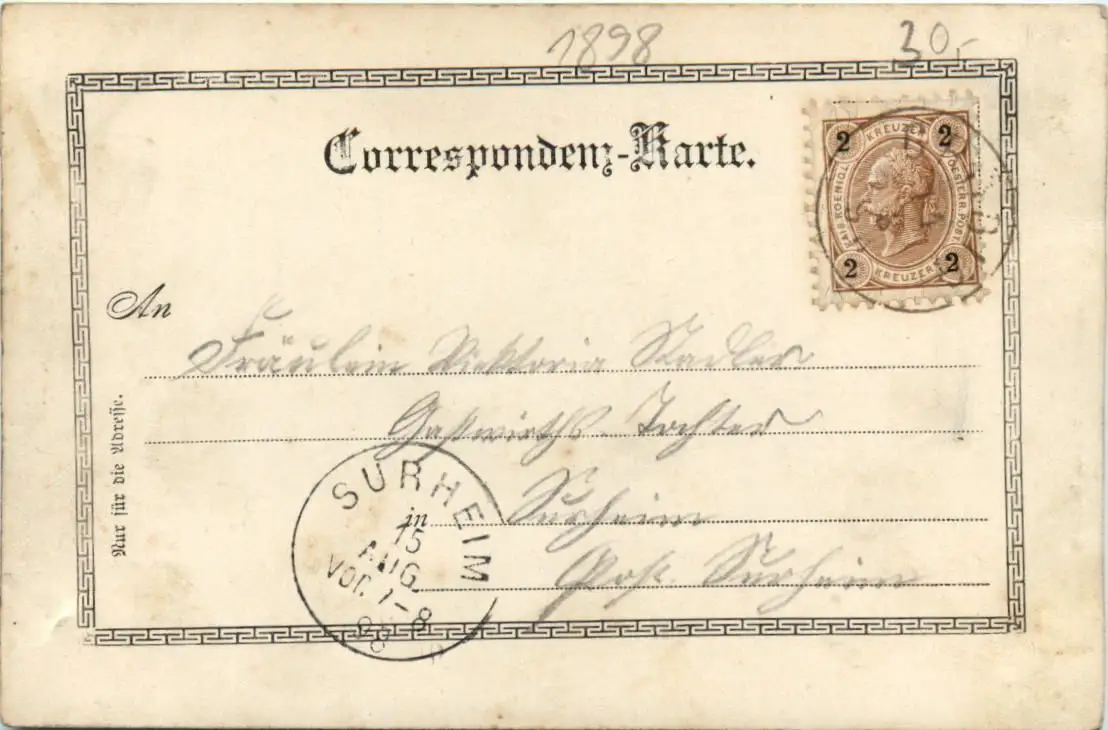 1898
30,-
Correspondenz-Karte.
2 KREUZER 2
KAIS. KOENIGL. OESTERR. POST.
2 KREUZER 2
An
Fräulein Viktoria Stadler
Gastwirths-Tochter
in Surheim
Post. Surheim
Nur für die Adresse.
SURHEIM
15
AUG.
VOR. 7-8
98